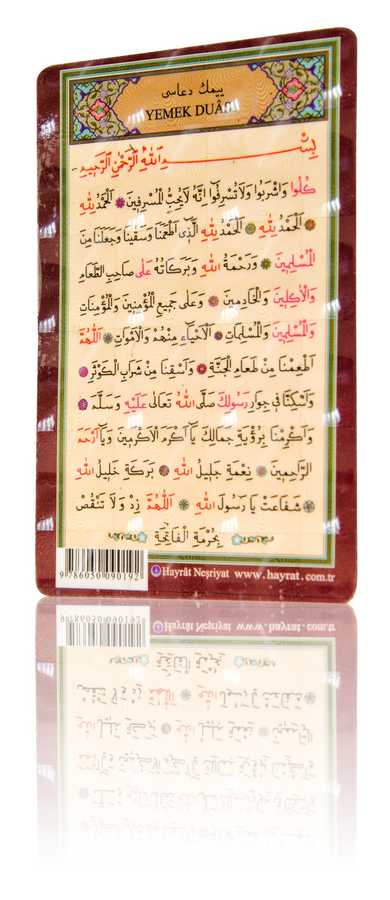 ييمك دعاسى
YEMEK DUÂSI
بِسْــــمِ اللهِ الرَّحْمٰنِ الرَّحِيمِ
كُلُوا وَاشْرَبُوا وَلَا تُسْرِفُوا اِنَّهُ لَا يُحِبُّ الْمُسْرِفِينَ ❋ اَلْحَمْدُ لِلّٰهِ
❋ اَلْحَمْدُ لِلّٰهِ ❋ اَلْحَمْدُ لِلّٰهِ الَّذِى اَطْعَمَنَا وَسَقَينَا وَجَعَلَنَا مِنَ
الْمُسْلِمِينَ ❋ وَرَحْمَةُ اللهِ وَبَرَكَاتُهُ عَلٰى صَاحِبِ الطَّعَامِ
وَالْاٰكِلِينَ وَالْخَادِمِينَ ❋ وَعَلٰى جَمِيعِ الْمُؤْمِنِينَ وَالْمُؤْمِنَاتِ
وَالْمُسْلِمِينَ وَالْمُسْلِمَاتِ ❋ اَلْاَحْيَاءِ مِنْهُمْ وَالْاَمْوَاتِ ❋ اَللّٰهُمَّ
اَطْعِمْنَا مِنْ طَعَامِ الْجَنَّةِ ❋ وَاَسْقِنَا مِنْ شَرَابِ الْكَوْثَرِ ❋
وَاَسْكِنَّا فِى جِوَارِ رَسُولِكَ صَلَّى اللهُ تَعَالٰى عَلَيْهِ وَسَلَّمَ ❋
وَاَكْرِمْنَا بِرُؤْيَةِ جَمَالِكَ يَا اَكْرَمَ الْاَكْرَمِينَ وَيَا اَرْحَمَ
الرَّاحِمِينَ ❋ نِعْمَةِ جَلِيلُ اللهِ ❋ بَرَكَةِ خَلِيلُ اللهِ
❋ شَفَاعَتْ يَا رَسُولَ اللهِ ❋ اَللّٰهُمَّ زِدْ وَلَا تَنْقُصْ
بِحُرْمَةِ الْفَاتِحَةِ
9786050090192
Hayrât Neşriyat www.hayrat.com.tr